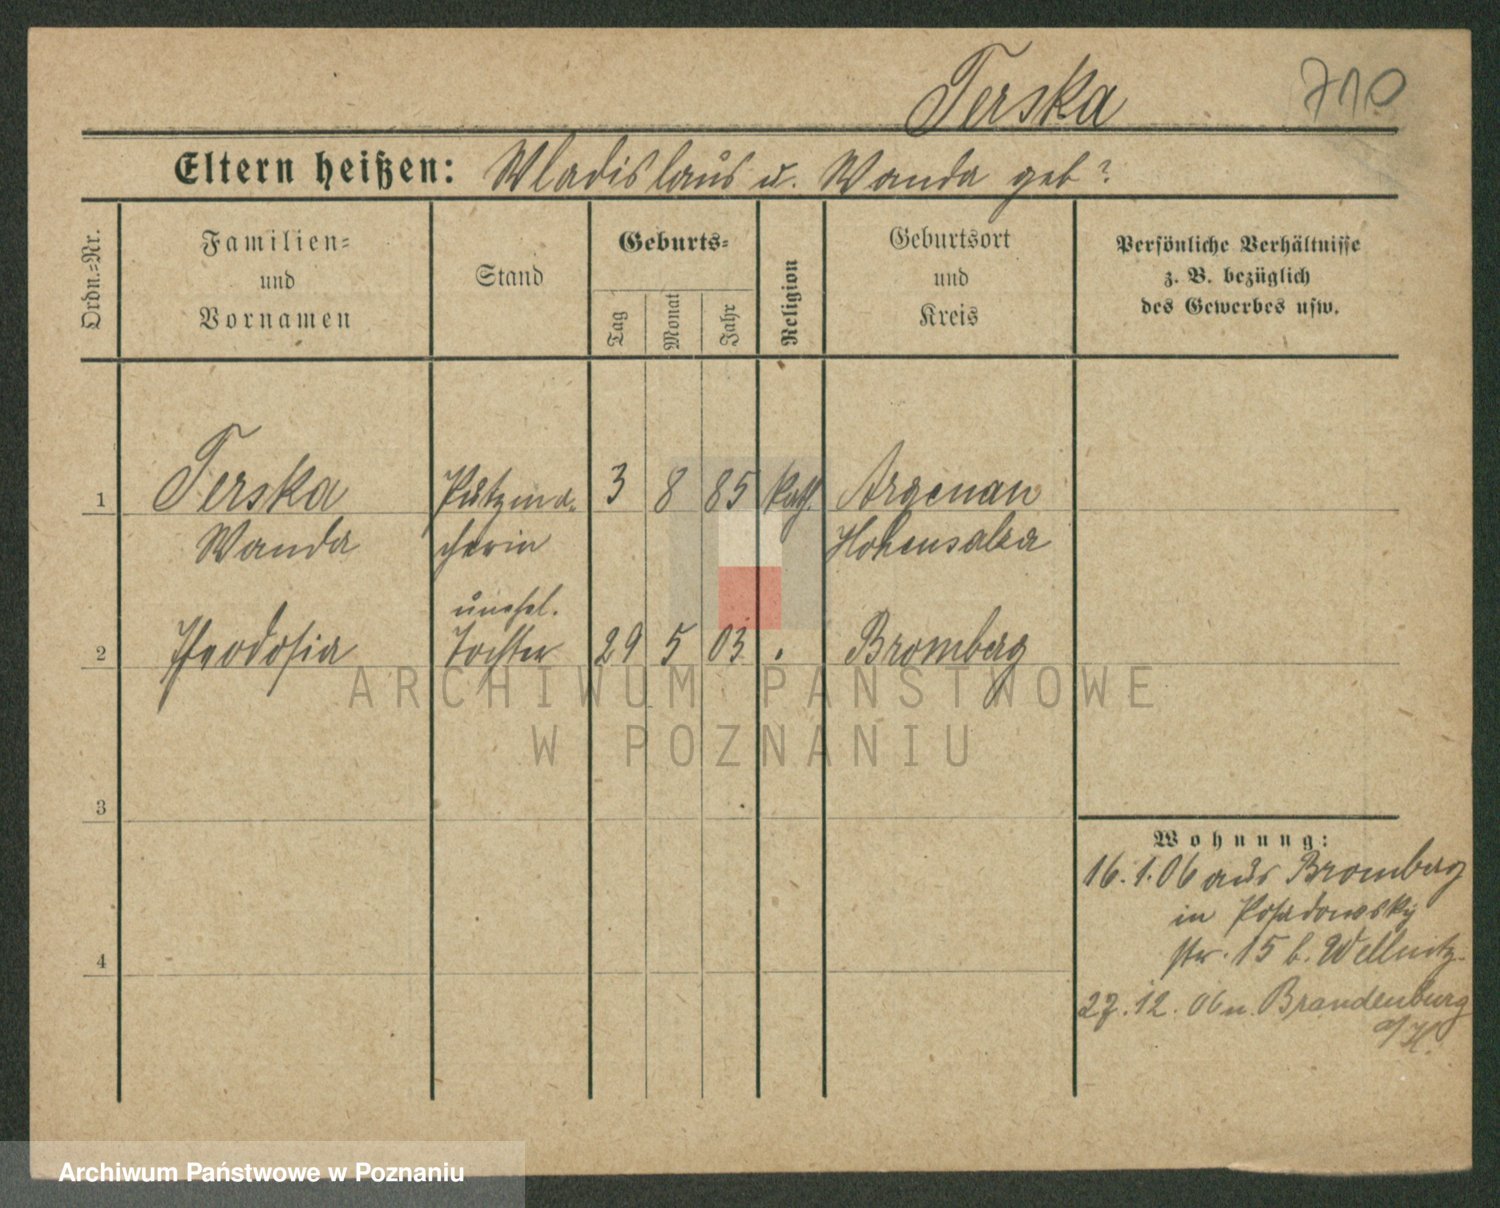 Terska 710
Eltern heißen: Wladislaus u. Wanda geb ?
Ordn.-Nr.
Familien-
und
Vornamen
Stand
Geburts-
Tag
Monat
Jahr
Religion
Geburtsort
und
Kreis
Persönliche Verhältnisse
z. B. bezüglich
des Gewerbes usw.
1 Terska Putzma- 3 8 85 kath. Argenau
Wanda cherin Hohensalza
unehel.
2 Theodosia Tochter 29 5 03 . Bromberg
ARCHIWUM PAŃSTWOWE
W POZNANIU
3
Wohnung:
16.1.06 aus Bromberg
in Posadowsky
str. 15 b. Wellnitz.
4
27.12.06 n. Brandenburg
a/H.
Archiwum Państwowe w Poznaniu